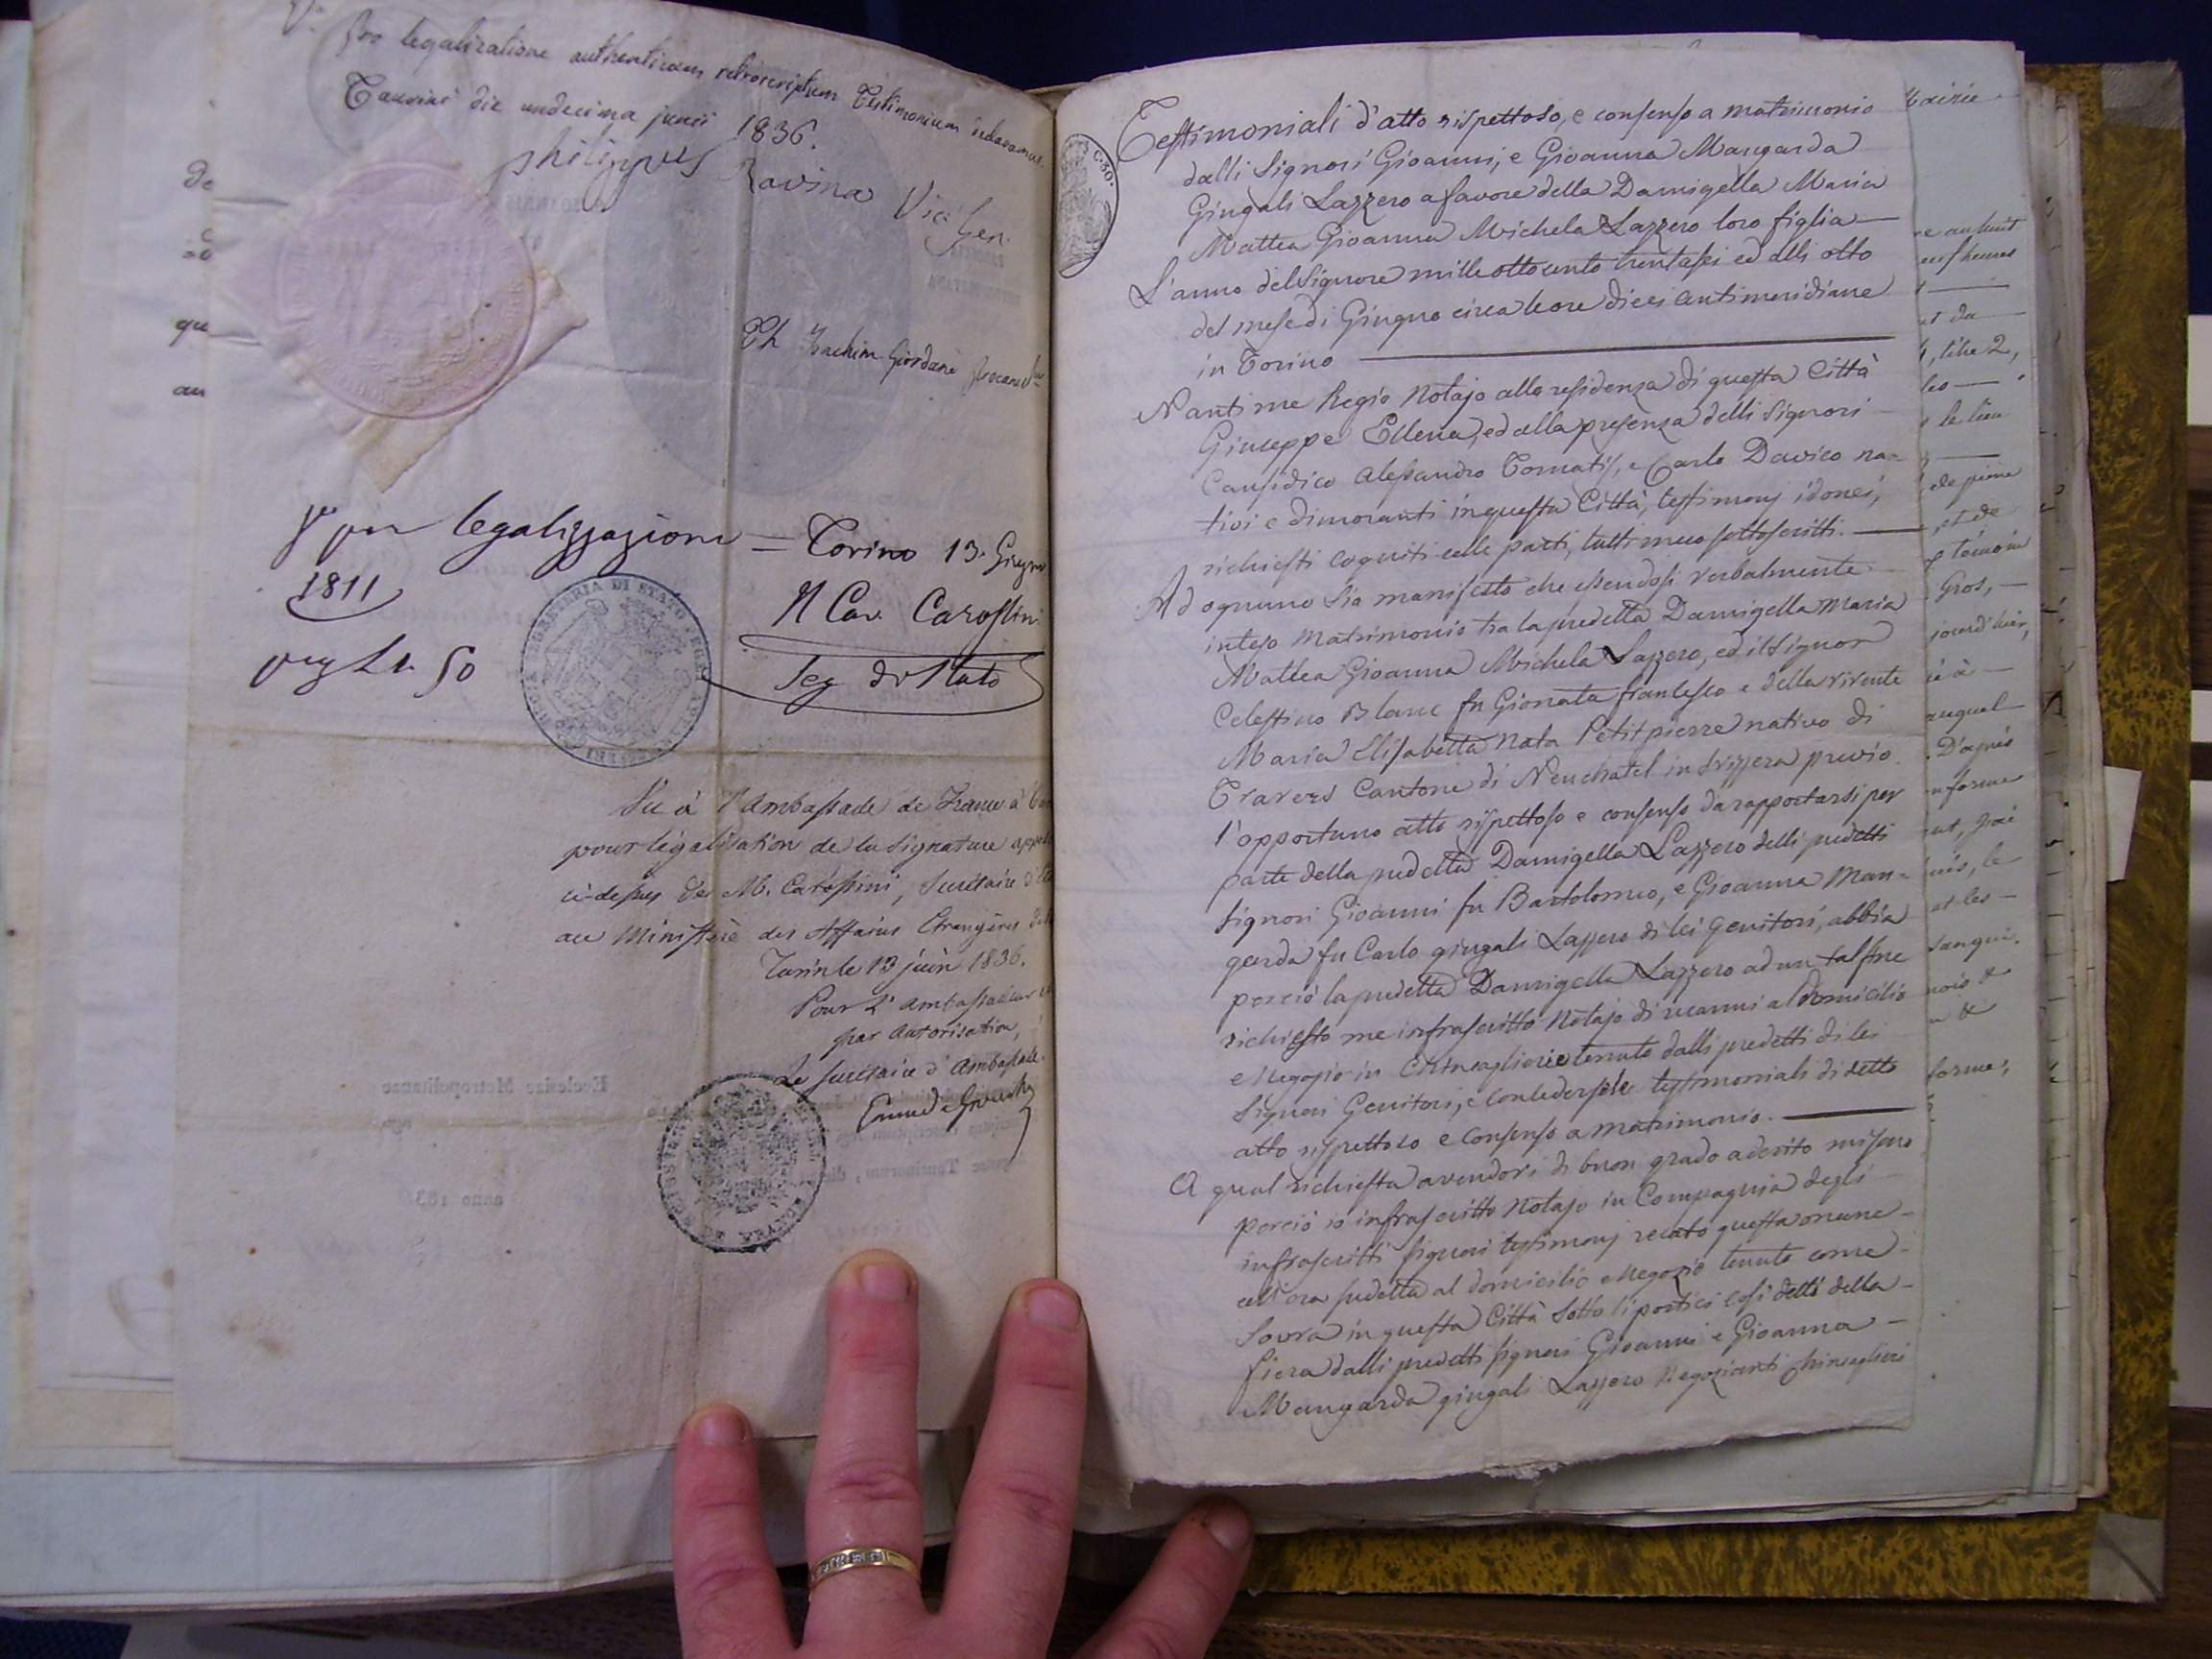 Pro legalizatione authenticam retroscriptum Testimonium
Taurini die undecima junii 1836.
philippus Ravina Vic. Gen.
Th Joachim Giordani
per legalizzazione — Torino 13. Giugno
1811
Il Cav. Carossini
Seg di Stato
50
Vu à l'Ambassade de France à
pour légalisation de la signature
ci-dessus de M. Carossini, Secrétaire
au Ministère des Affaires Etrangères
Turin le 13 juin 1836.
Pour l'ambassadeur
par autorisation,
Le secrétaire d'ambassade.
Ecclesiae Metropolitanae
anno 183
de
qu
au
C. 80.
Testimoniali d'atto rispettoso, e consenso a matrimonio
dalli Signori Gioanni, e Gioanna Mangarda
Giugali Lazzero a favore della Damigella Maria
Mattea Gioanna Michela Lazzero loro figlia —
L'anno del Signore mille ottocento trentasei ed alli otto
del mese di Giugno circa le ore dieci antimeridiane
in Torino —
Nanti me Regio Notajo alla residenza di questa Città
Giuseppe Ellena, ed alla presenza delli Signori
Causidico Alessandro Tomatis, e Carlo Davico na-
tivi e dimoranti in questa Città, testimonj idonei,
richiesti cogniti colle parti, tutti meco sottoscritti. —
Ad ognuno sia manifesto che essendosi verbalmente
inteso matrimonio tra la predetta Damigella Maria
Mattea Gioanna Michela Lazzero, ed il Signor
Celestino Blanc fu Gionata francesco e della vivente
Maria Elisabetta nata Petitpierre nativo di
Travers Cantone di Neuchatel in Svizzera previo
l'opportuno atto rispettoso e consenso da rapportarsi per
parte della predetta Damigella Lazzero delli predetti
signori Gioanni fu Bartolomeo, e Gioanna Man-
garda fu Carlo giugali Lazzero di lei Genitori, abbia
perciò la predetta Damigella Lazzero ad un tal fine
richiesto me infrascritto Notajo di recarmi al domicilio
e Negozio in Chincaglierie tenuto dalli predetti di lei
Signori Genitori, e concedersele testimoniali di detto
atto rispettoso e consenso a matrimonio. —
A qual richiesta avendovi di buon grado aderito mi sono
perciò io infrascritto Notajo in Compagnia degli
infrascritti signori testimonj recato quest'oggi
all'ora predetta al domicilio e Negozio tenuto come
sovra in questa Città sotto li portici così detti della
fiera dalli predetti signori Gioanni e Gioanna —
Mangarda giugali Lazzero Negozianti chincaglieri
Mairie
heures
et da
, titre 2,
les —
le lieu
de pierre
, et de
témoin
Gros, —
jourd'hier,
ié à —
auquel
. D'après
forme
et les —
sangui.
forme;